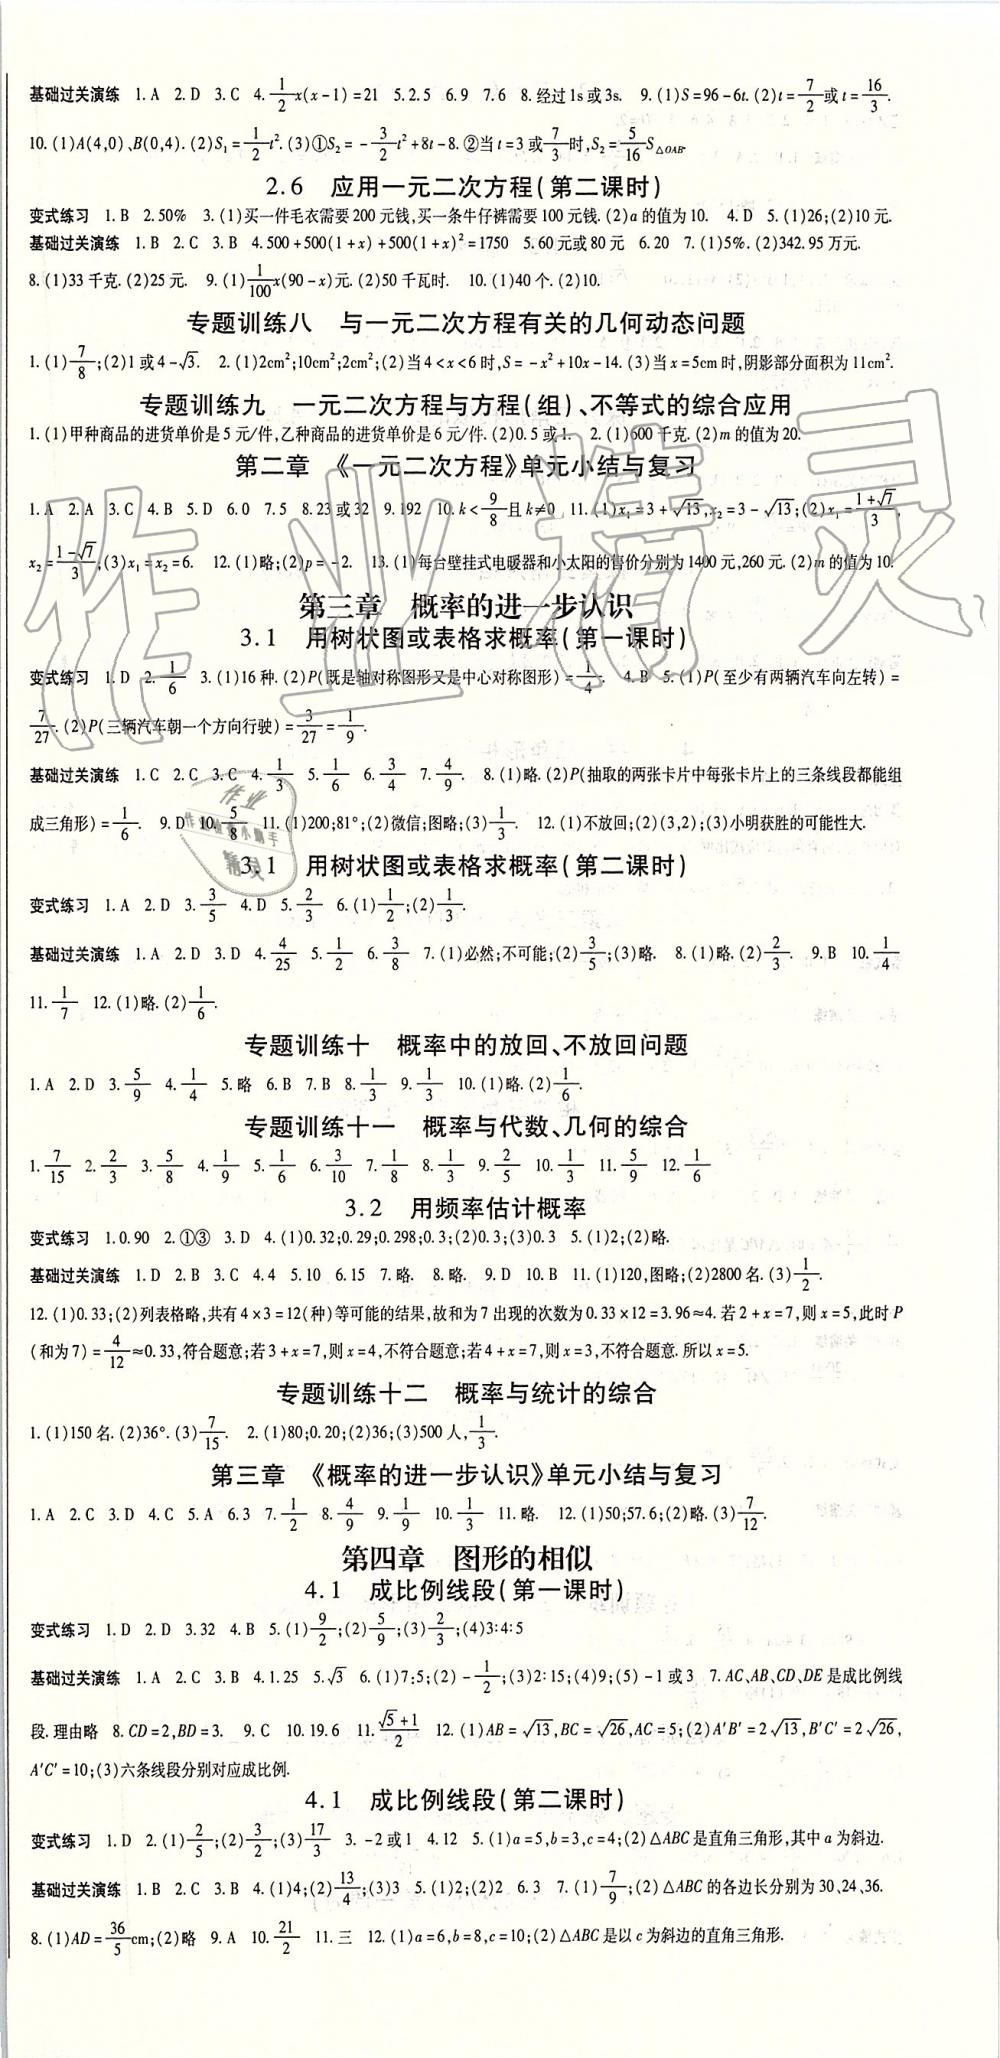 基础过关演练 1.A 2.D 3.C 4.1/2x(x-1)=21 5.2.5 6.9 7.6 8.经过1s或3s. 9.(1)S=96-6t.(2)t=7/2或t=16/3.
10.(1)A(4,0)、B(0,4).(2)S₁=1/2t².(3)①S₂=-3/2t²+8t-8.②当t=3或7/3时,S₂=5/16S△OAB.
2.6 应用一元二次方程(第二课时)
变式练习 1.B 2.50% 3.(1)买一件毛衣需要200元钱,买一条牛仔裤需要100元钱.(2)a的值为10. 4.D 5.(1)26;(2)10元.
基础过关演练 1.B 2.C 3.B 4.500+500(1+x)+500(1+x)²=1750 5.60元或80元 6.20 7.(1)5%.(2)342.95万元.
8.(1)33千克.(2)25元. 9.(1)1/100x(90-x)元.(2)50千瓦时. 10.(1)40个.(2)10.
专题训练八 与一元二次方程有关的几何动态问题
1.(1)7/8;(2)1或4-√3. 2.(1)2cm²;10cm²;2cm²;(2)当4<x<6时,S=-x²+10x-14.(3)当x=5cm时,阴影部分面积为11cm².
专题训练九 一元二次方程与方程(组)、不等式的综合应用
1.(1)甲种商品的进货单价是5元/件,乙种商品的进货单价是6元/件.(2)0.5或1. 2.(1)600千克.(2)m的值为20.
第二章 《一元二次方程》单元小结与复习
1.A 2.A 3.C 4.B 5.D 6.0 7.5 8.23或32 9.192 10.k<9/8且k≠0 11.(1)x₁=3+√13,x₂=3-√13;(2)x₁=(1+√7)/3,
x₂=(1-√7)/3;(3)x₁=x₂=6. 12.(1)略;(2)p=-2. 13.(1)每台壁挂式电暖器和小太阳的售价分别为1400元,260元.(2)m的值为10.
第三章 概率的进一步认识
3.1 用树状图或表格求概率(第一课时)
变式练习 1.D 2.1/6 3.(1)16种.(2)P(既是轴对称图形又是中心对称图形)=1/4. 4.B 5.(1)P(至少有两辆汽车向左转)=
7/27.(2)P(三辆汽车朝一个方向行驶)=3/27=1/9.
基础过关演练 1.C 2.C 3.C 4.1/3 5.1/6 6.3/4 7.4/9 8.(1)略.(2)P(抽取的两张卡片中每张卡片上的三条线段都能组
成三角形)=1/6. 9.D 10.5/8 11.(1)200;81°;(2)微信;图略;(3)1/3. 12.(1)不放回;(2)(3,2);(3)小明获胜的可能性大.
3.1 用树状图或表格求概率(第二课时)
变式练习 1.A 2.D 3.3/5 4.D 5.2/3 6.(1)1/2;(2)1/3.
基础过关演练 1.A 2.D 3.D 4.4/25 5.1/2 6.3/8 7.(1)必然;不可能;(2)3/5;(3)略. 8.(1)略.(2)2/3. 9.B 10.1/4
11.1/7 12.(1)略.(2)1/6.
专题训练十 概率中的放回、不放回问题
1.A 2.D 3.5/9 4.1/4 5.略 6.B 7.B 8.1/3 9.1/3 10.(1)略.(2)1/6.
专题训练十一 概率与代数、几何的综合
1.7/15 2.2/3 3.5/8 4.1/9 5.1/6 6.3/10 7.1/8 8.1/3 9.2/5 10.1/3 11.5/9 12.1/6
3.2 用频率估计概率
变式练习 1.0.90 2.①③ 3.D 4.(1)0.32;0.29;0.298;0.3;(2)0.3;(3)0.3 5.(1)2;(2)略.
基础过关演练 1.D 2.B 3.C 4.4 5.10 6.15 7.略. 8.略. 9.D 10.B 11.(1)120,图略;(2)2800名.(3)1/2.
12.(1)0.33;(2)列表格略,共有4×3=12(种)等可能的结果,故和为7出现的次数为0.33×12=3.96≈4.若2+x=7,则x=5,此时P
(和为7)=4/12≈0.33,符合题意;若3+x=7,则x=4,不符合题意;若4+x=7,则x=3,不符合题意.所以x=5.
专题训练十二 概率与统计的综合
1.(1)150名.(2)36°.(3)7/15. 2.(1)80;0.20;(2)36;(3)500人,1/3.
第三章 《概率的进一步认识》单元小结与复习
1.A 2.C 3.D 4.C 5.A 6.3 7.1/2 8.4/9 9.1/9 10.1/3 11.略. 12.(1)50;57.6;(2)略.(3)7/12.
第四章 图形的相似
4.1 成比例线段(第一课时)
变式练习 1.D 2.D 3.32 4.B 5.(1)9/2;(2)5/9;(3)2/3;(4)3:4:5
基础过关演练 1.A 2.C 3.B 4.1.25 5.√3 6.(1)7:5;(2)-1/2;(3)2:15;(4)9;(5)-1或3 7.AC、AB、CD、DE是成比例线
段.理由略 8.CD=2,BD=3. 9.C 10.19.6 11.(√5+1)/2 12.(1)AB=√13,BC=√26,AC=5;(2)A′B′=2√13,B′C′=2√26,
A′C′=10;(3)六条线段分别对应成比例.
4.1 成比例线段(第二课时)
变式练习 1.D 2.(1)2/5;(2)3/2;(3)17/3 3.-2或1 4.12 5.(1)a=5,b=3,c=4;(2)△ABC是直角三角形,其中a为斜边.
基础过关演练 1.B 2.C 3.B 4.(1)4;(2)13/4;(3)3 5.(1)2;(2)2 6.3 7.(1)7/9;(2)△ABC的各边长分别为30、24、36.
8.(1)AD=36/5cm;(2)略 9.A 10.21/2 11.三 12.(1)a=6,b=8,c=10;(2)△ABC是以c为斜边的直角三角形.
作业精灵